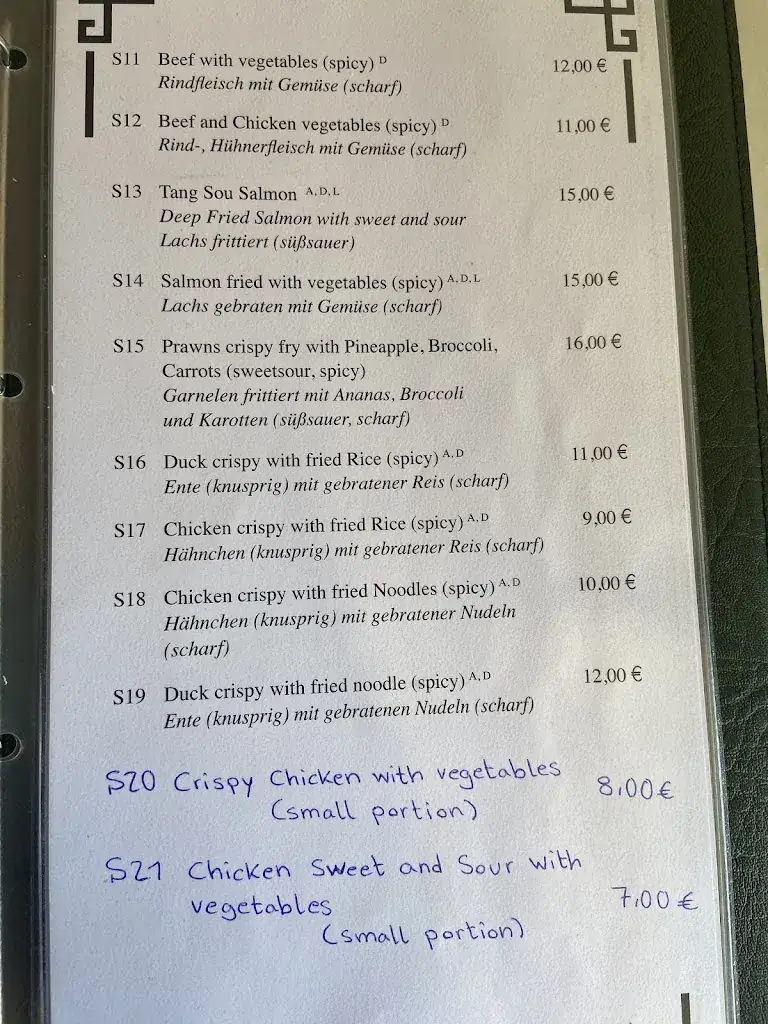 S11 Beef with vegetables (spicy) D 12,00 €
Rindfleisch mit Gemüse (scharf)
S12 Beef and Chicken vegetables (spicy) D 11,00 €
Rind-, Hühnerfleisch mit Gemüse (scharf)
S13 Tang Sou Salmon A,D,L 15,00 €
Deep Fried Salmon with sweet and sour
Lachs frittiert (süßsauer)
S14 Salmon fried with vegetables (spicy) A,D,L 15,00 €
Lachs gebraten mit Gemüse (scharf)
S15 Prawns crispy fry with Pineapple, Broccoli, 16,00 €
Carrots (sweetsour, spicy)
Garnelen frittiert mit Ananas, Broccoli
und Karotten (süßsauer, scharf)
S16 Duck crispy with fried Rice (spicy) A,D 11,00 €
Ente (knusprig) mit gebratener Reis (scharf)
S17 Chicken crispy with fried Rice (spicy) A,D 9,00 €
Hähnchen (knusprig) mit gebratener Reis (scharf)
S18 Chicken crispy with fried Noodles (spicy) A,D 10,00 €
Hähnchen (knusprig) mit gebratener Nudeln
(scharf)
S19 Duck crispy with fried noodle (spicy) A,D 12,00 €
Ente (knusprig) mit gebratenen Nudeln (scharf)
S20 Crispy Chicken with vegetables 8,00€
(small portion)
S21 Chicken Sweet and Sour with
vegetables 7,00 €
(small portion)